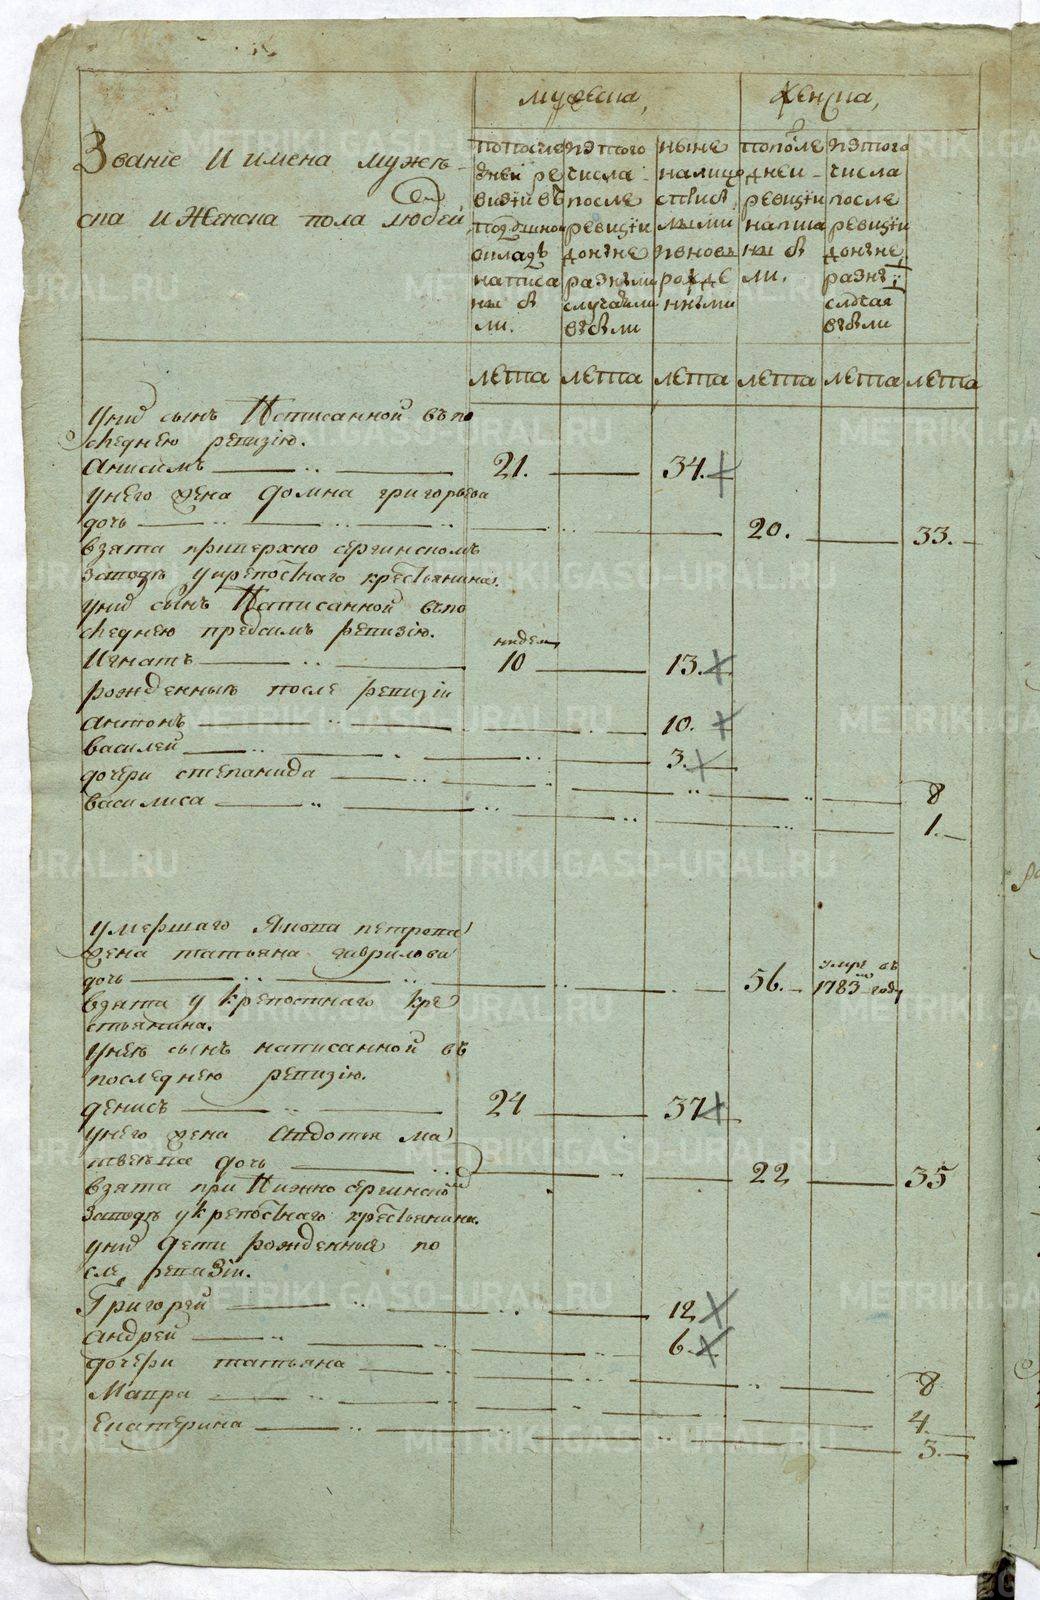 мужеска,
женска,
Званіе и имена мужe-
ска и женска пола людей
по после
дней ре
визіи въ
подушной
окладъ
написа
ны бы
ли.
изтого
числа
после
ревизіи
доныне
разными
случаями
выбыли
ныне
на лицо
съ вновь
рожде
нными
по после
дней
ревизіи
написа
ны бы
ли.
изтого
числа
после
ревизіи
доныне
случая
выбыли
лета лета лета лета лета лета
у них сынъ написанной въ по
следнею ревизію.
Анисимъ 21. 34.
у него жена Домна григорьева
дочь 20. 33.
взята при верхно сергинскомъ
заводе у крепостнаго крестьянина.
у них сынъ написанной въ по
следнею пред симъ ревизію.
недель
Игнатъ 10 13.
рожденныя после ревизіи
антонъ 10.
василей 3.
дочери степанида 8
василиса 1.
умершаго Якова петрова
жена татьяна гаврилова
дочь 56. умре въ 1783 году
взята у крепостнаго кре
стьянина.
у нее сынъ написанной въ
последнею ревизію.
денисъ 24 37
у него жена Авдотья ма
твеева дочь 22 35
взята при Нижно сергинском
заводе у крепостнаго крестьянина.
у них дети рожденныя по
сле ревизіи.
Григорей 12
андрей 6
дочери татьяна 8
Мавра 4.
Екатерина 3.
METRIKI.GASO-URAL.RU